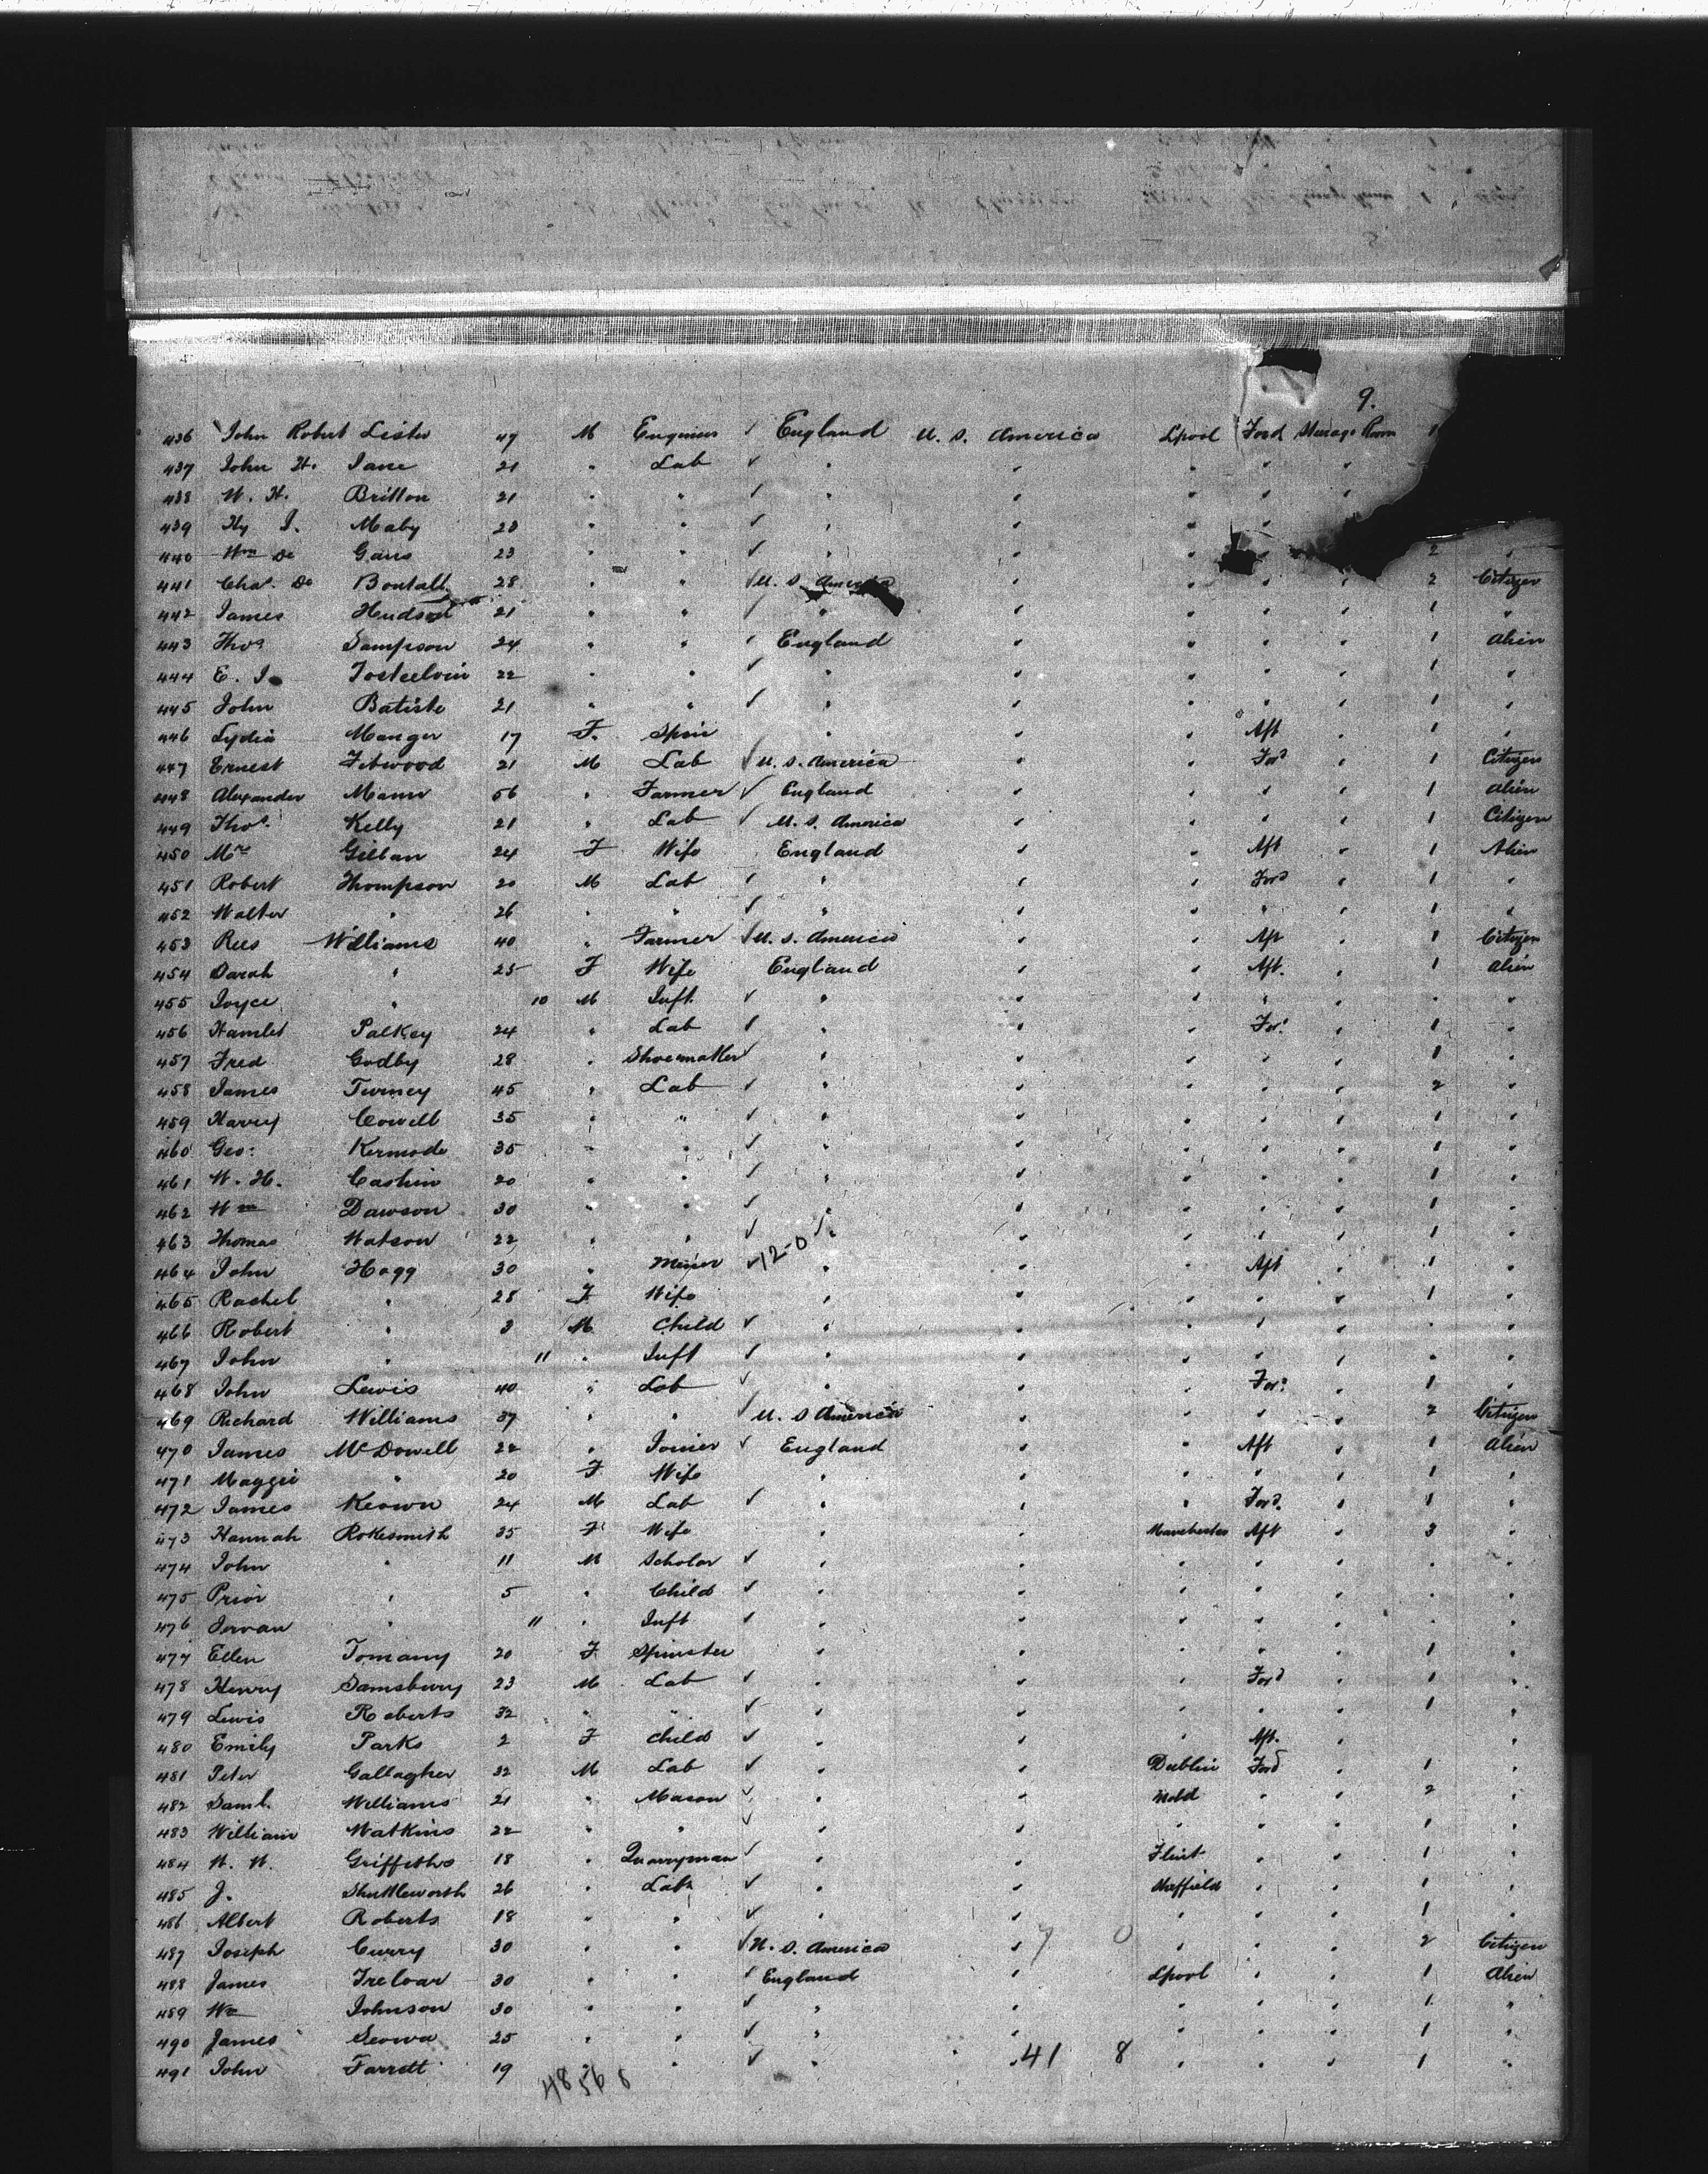 9.
436 John Robert Lister 47 M Engineer ✓ England U. S. America Lpool Ford Steerage Room 1
437 John H. Jane 21 " Lab ✓ " " " " "
438 W. H. Britton 21 " " ✓ " " " "
439 Hy J. Maby 23 " " ✓ " " " "
440 Wm De Gaus 23 " " ✓ " " " 2 "
441 Chas. De Bontall 28 " " ✓ U. S. America " " " " 2 Citizen
442 James Hudson 21 " " ✓ " " " " " 1 "
443 Thos Sampson 24 " " ✓ England " " " " 1 Alien
444 E. J. 22 " " ✓ " " " " " 1 "
445 John Batiste 21 " " ✓ " " " " " 1 "
446 Lydia Manger 17 F. Spin " " " Aft " 1 "
447 Ernest 21 M Lab ✓ U. S. America " " Ford " 1 Citizen
448 Alexander Mann 56 " Farmer ✓ England " " " " 1 Alien
449 Thos. Kelly 21 " Lab ✓ U. S. America " " " " 1 Citizen
450 Mrs Gillan 24 F Wife England " " Aft " 1 Alien
451 Robert Thompson 20 M Lab ✓ " " " Ford " 1 "
452 Walter " 26 " " ✓ " " " " " 1 "
453 Rees Williams 40 " Farmer ✓ U. S. America " " Aft " 1 Citizen
454 Sarah " 25 F Wife England " " Aft. " 1 Alien
455 Joyce " 10 M Inft ✓ " " " " " " "
456 Hamlet Palkey 24 " Lab ✓ " " " For: " 1 "
457 Fred Godby 28 " Shoemaker ✓ " " " " " 1 "
458 James Turney 45 " Lab ✓ " " " " " 2 "
459 Harry Cowell 35 " " ✓ " " " " " 1 "
460 Geo: Kermode 35 " " ✓ " " " " " 1 "
461 W. H. Cashin 20 " " ✓ " " " " " 1 "
462 Wm Dawson 30 " " ✓ " " " " " 1 "
463 Thomas Watson 22 " " ✓ " " " " " 1 "
464 John Hogg 30 " Miner ✓ 12-0 " " " Aft " 1 "
465 Rachel " 28 F Wife " " " " " 1 "
466 Robert " 3 M Child ✓ " " " " " " "
467 John " 11 " Inft ✓ " " " " " " "
468 John Lewis 40 " Lab ✓ " " " For: " 1 "
469 Richard Williams 37 " " ✓ U. S America " " " " 2 Citizen
470 James McDowell 22 " Joiner ✓ England " " Aft " 1 Alien
471 Maggie " 20 F Wife " " " " " 1 "
472 James Keown 24 M Lab ✓ " " " Ford. " 1 "
473 Hannah Rokesmith 35 F Wife " " Manchester Aft " 3 "
474 John " 11 M Scholar ✓ " " " " " " "
475 Prior " 5 " Child ✓ " " " " " " "
476 " 11 " Inft ✓ " " " " " " "
477 Ellen Tomany 20 F Spinster " " " " " 1 "
478 Henry Samsbury 23 M Lab ✓ " " " Ford " 1 "
479 Lewis Roberts 32 " " ✓ " " " " " 1 "
480 Emily Parks 2 F Child ✓ " " " Aft. " "
481 Peter Gallagher 32 M Lab ✓ " " Dublin Ford " 1 "
482 Saml. Williams 21 " Mason ✓ " " Mold " " 2 "
483 William Watkins 22 " " ✓ " " " " " 1 "
484 W. W. Griffiths 18 " Quarryman ✓ " " Flint " " 1 "
485 J. Shuttleworth 26 " Lab ✓ " " Sheffield " " 1 "
486 Albert Roberts 18 " " ✓ " " " " " 1 "
487 Joseph Curry 30 " " ✓ U. S. America " 7 0 " " " 2 Citizen
488 James Treloar 30 " " ✓ England " Lpool " " 1 Alien
489 Wm Johnson 30 " " ✓ " " " " " 1 "
490 James 25 " " ✓ " " " " " 1 "
491 John Farrell 19 " " ✓ " " 41 8 " " " 1 "